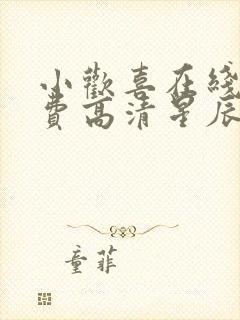 小歡喜在綫
費高清星辰
童菲